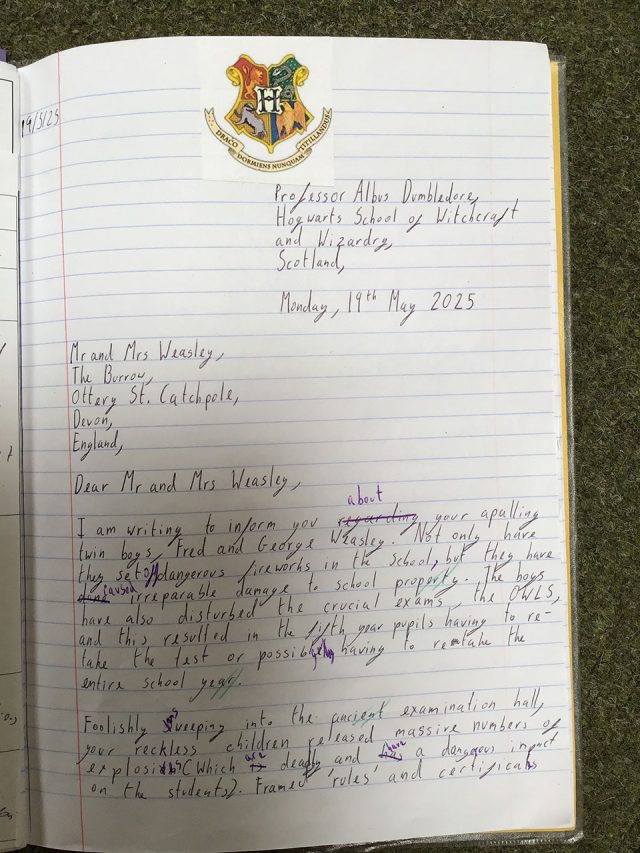 19/5/25
H
DRACO DORMIENS NUNQUAM TITILLANDUS
Professor Albus Dumbledore,
Hogwarts School of Witchcraft
and Wizardry,
Scotland,
Monday, 19th May 2025
Mr and Mrs Weasley,
The Burrow,
Ottery St. Catchpole,
Devon,
England,
Dear Mr and Mrs Weasley,
about
I am writing to inform you regarding your apalling
twin boys, Fred and George Weasley. Not only have
they set off dangerous fireworks in the school, but they have
caused irreparable damage to school property. The boys
have also disturbed the crucial exams, the OWLS,
and this resulted in the fifth year pupils having to re-
take the test or possibly having to re-take the
entire school year.
Foolishly into the ancient examination hall,
your reckless children released massive numbers of
(which are deadly and have a dangerous impact
on the students). Framed 'rules' and certificats